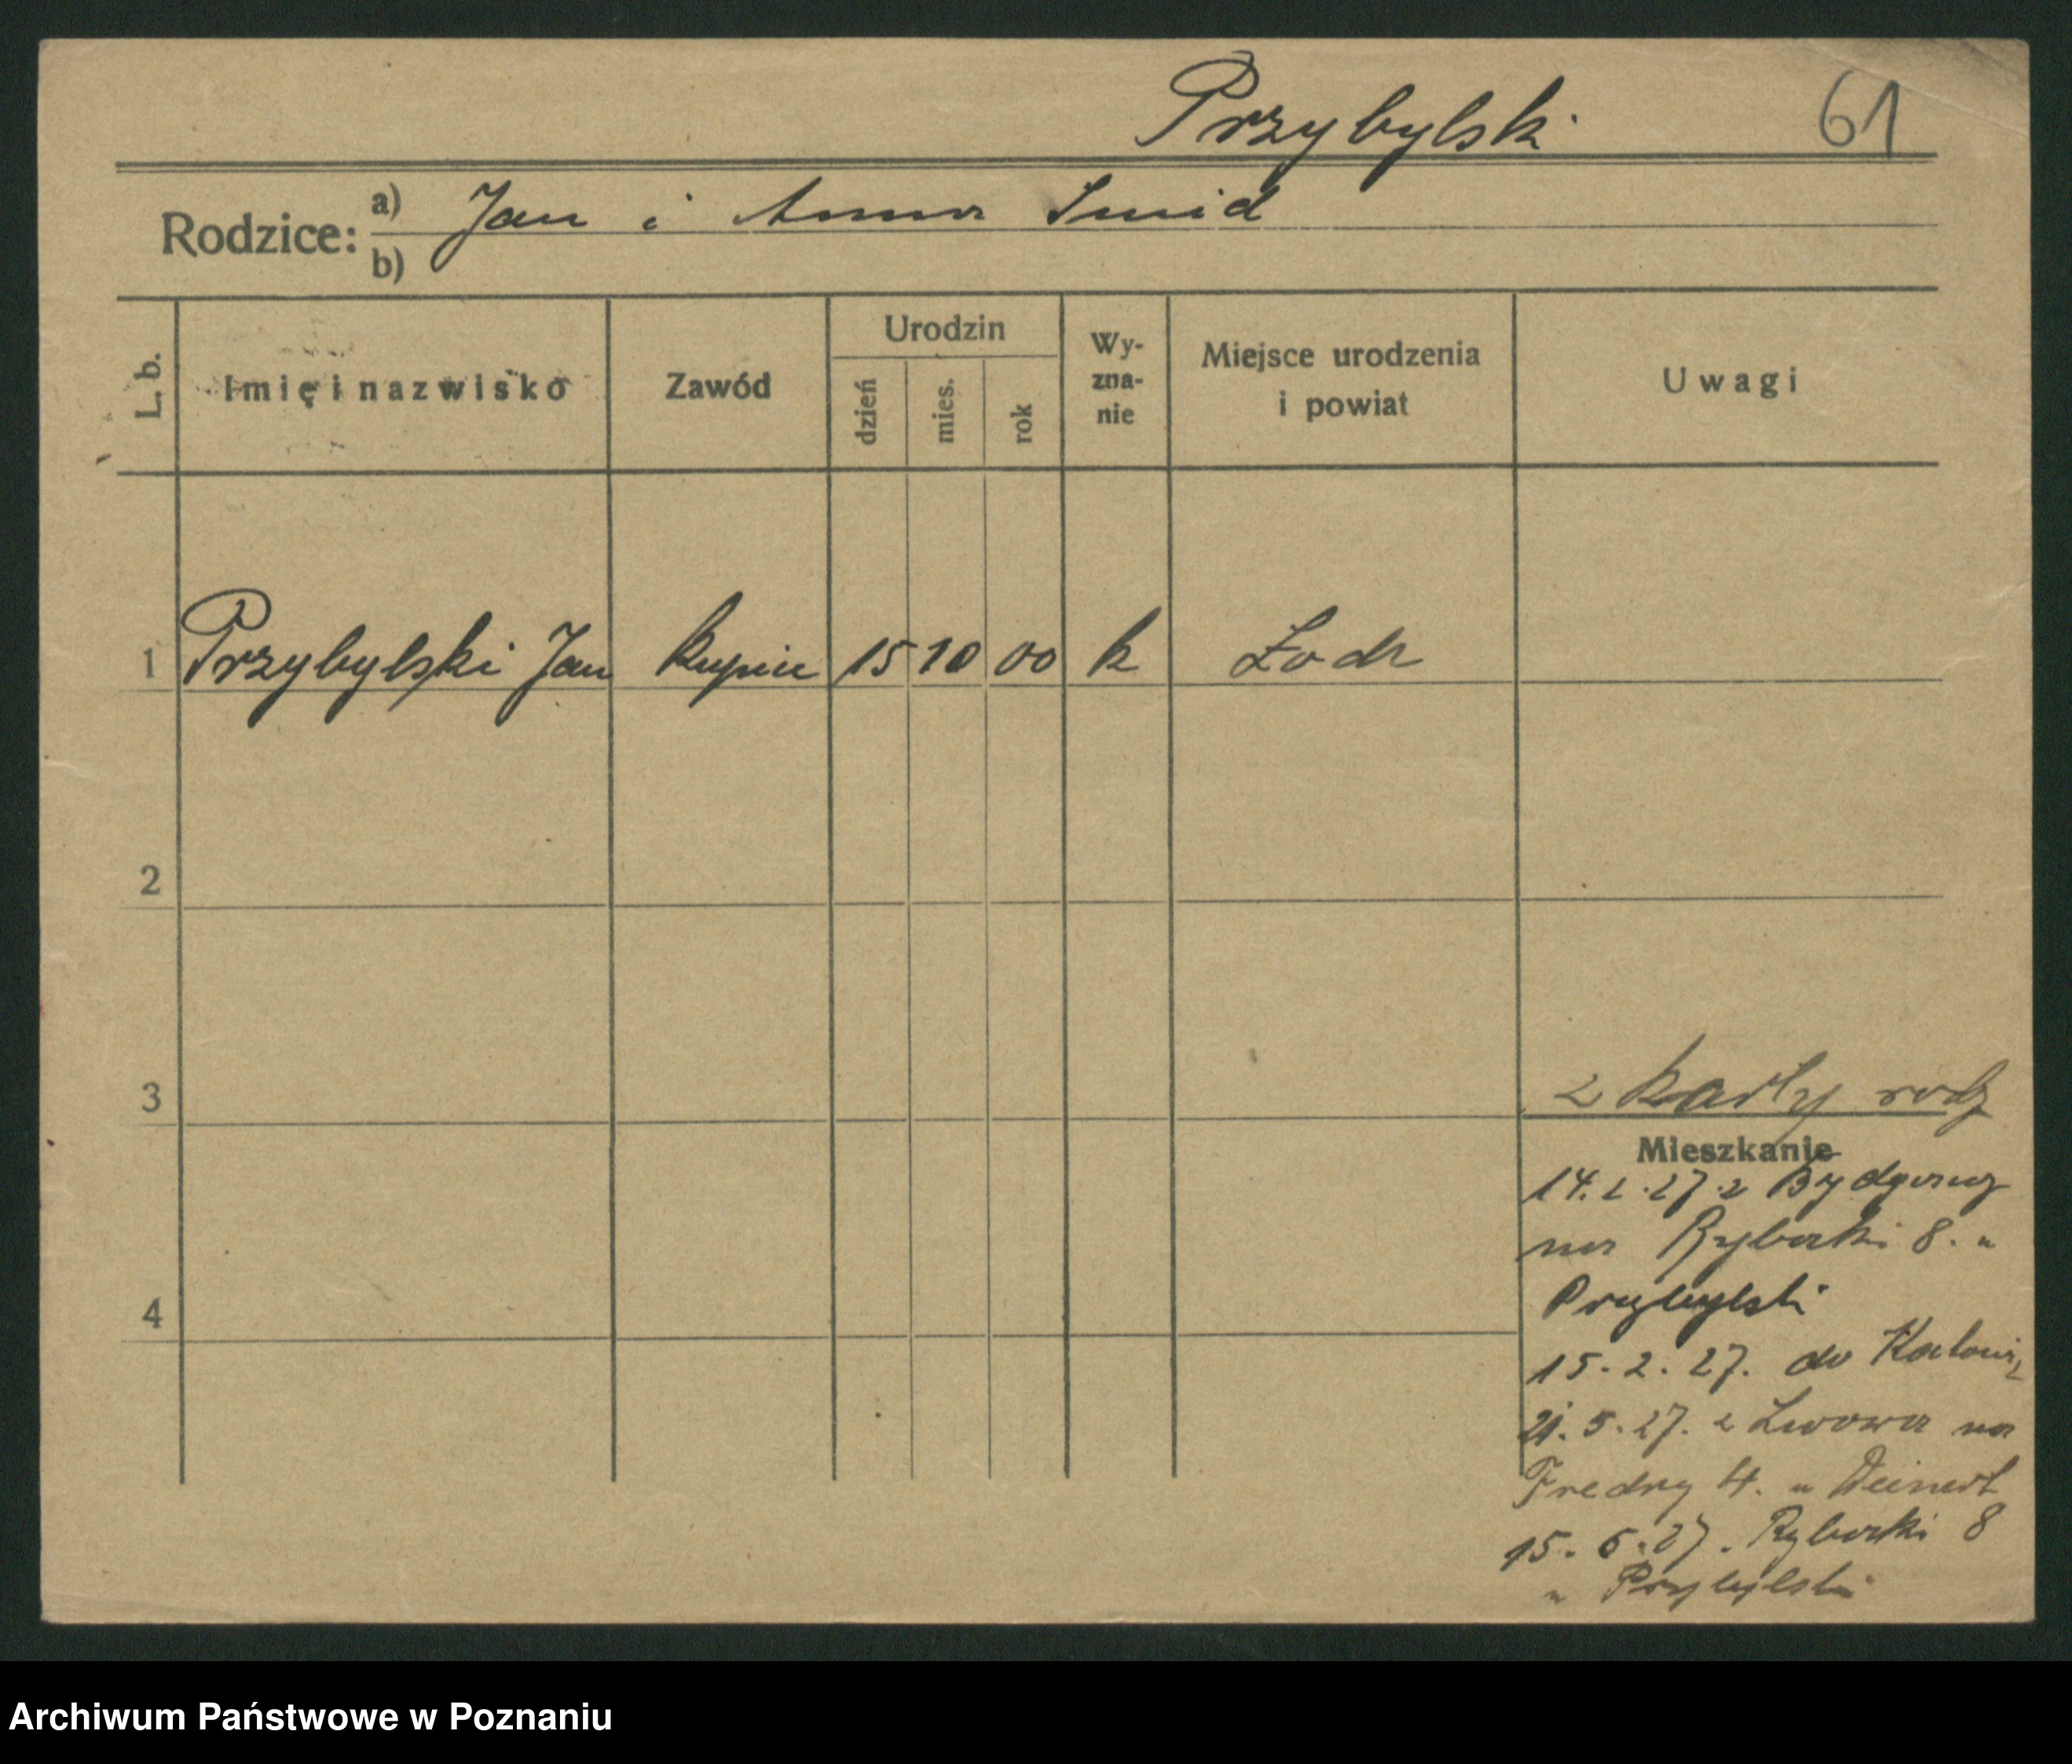 Przybylski 61
Rodzice: a) Jan i Anna Smid
b)
L. b. Imię i nazwisko Zawód Urodzin dzień mies. rok Wy-zna-nie Miejsce urodzenia i powiat Uwagi
1 Przybylski Jan kupiec 15 10 00 k Łodz
2
3
2 karty rodz
Mieszkanie
14. 2. 27 z Bydgoszcz
na Rybaki 8. u
Przybylski
4
15. 2. 27. do Katowic
21. 5. 27. z Lwowa na
Fredry 4. u Deinert
15. 6. 27. Rybaki 8
u Przybylski
Archiwum Państwowe w Poznaniu